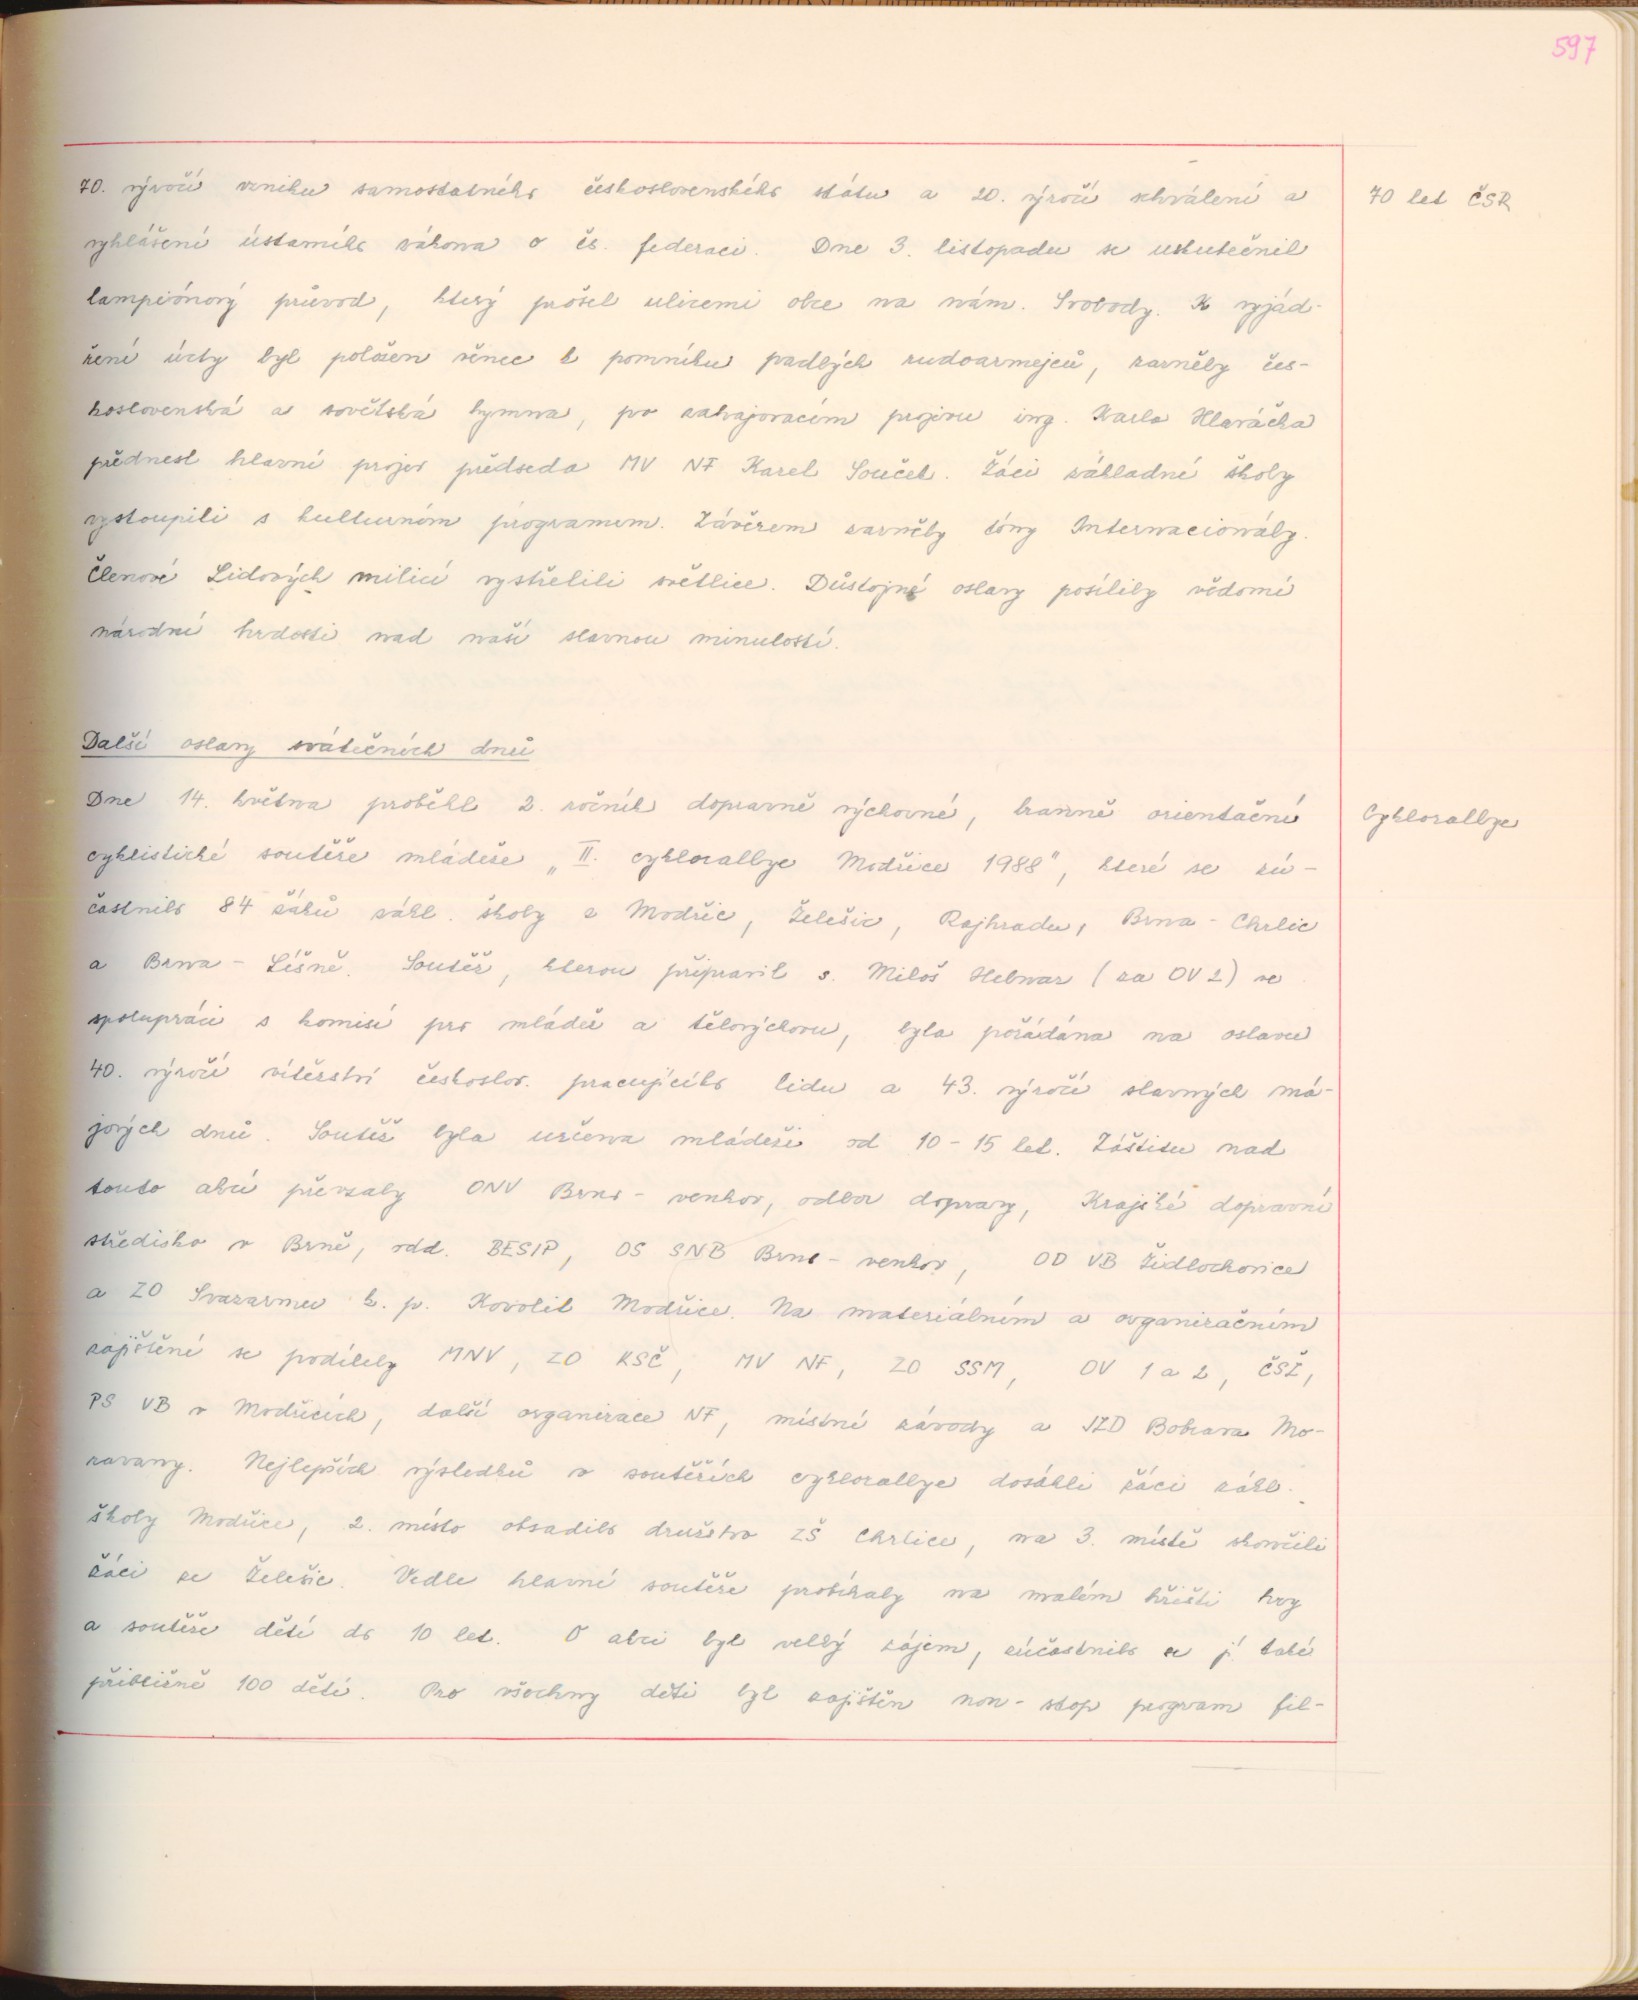 597
70. výročí vzniku samostatného československého státu a 20. výročí schválení a
70 let ČSR
vyhlášení ústavního zákona o čs. federaci. Dne 3. listopadu se uskutečnil
lampiónový průvod, který prošel ulicemi obce na nám. Svobody. K vyjád-
ření úcty byl položen věnec k pomníku padlých rudoarmejců, zazněly čes-
koslovenská a sovětská hymna, po zahajovacím projevu ing. Karla Hlaváčka
přednesl hlavní projev předseda MV NF Karel Souček. Žáci základní školy
vystoupili s kulturním programem. Závěrem zazněly tóny Internacionály.
Členové Lidových milicí vystřelili světlice. Důstojné oslavy posílily vědomí
národní hrdosti nad naší slavnou minulostí.
Další oslavy svátečních dnů
Dne 14. května proběhl 2. ročník dopravně výchovné, branně orientační
Cyklorallye
cyklistické soutěže mládeže „II. cyklorallye Modřice 1988", které se zú-
častnilo 84 žáků zákl. školy z Modřic, Želešic, Rajhradu, Brna - Chrlic
a Brna - Líšně. Soutěž, kterou připravil s. Miloš Hebnar (za OV 2) ve
spolupráci s komisí pro mládež a tělovýchovu, byla pořádána na oslavu
40. výročí vítězství českoslov. pracujícího lidu a 43. výročí slavných má-
jových dnů. Soutěž byla určena mládeži od 10 - 15 let. Záštitu nad
touto akcí převzaly ONV Brno - venkov, odbor dopravy, Krajské dopravní
středisko v Brně, odd. BESIP, OS SNB Brno - venkov, OO VB Židlochovice
a ZO Svazarmu k. p. Kovolit Modřice. Na materiálním a organizačním
zajištění se podílely MNV, ZO KSČ, MV NF, ZO SSM, OV 1 a 2, ČSŽ,
PS VB v Modřicích, další organizace NF, místní závody a JZD Bobrava Mo-
ravany. Nejlepších výsledků v soutěžích cyklorallye dosáhli žáci zákl.
školy Modřice, 2. místo obsadilo družstvo ZŠ Chrlice, na 3. místě skončili
žáci ze Želešic. Vedle hlavní soutěže probíhaly na malém hřišti hry
a soutěže dětí do 10 let. O akci byl velký zájem, zúčastnilo se jí také
přibližně 100 dětí. Pro všechny děti byl zajištěn non - stop program fil-